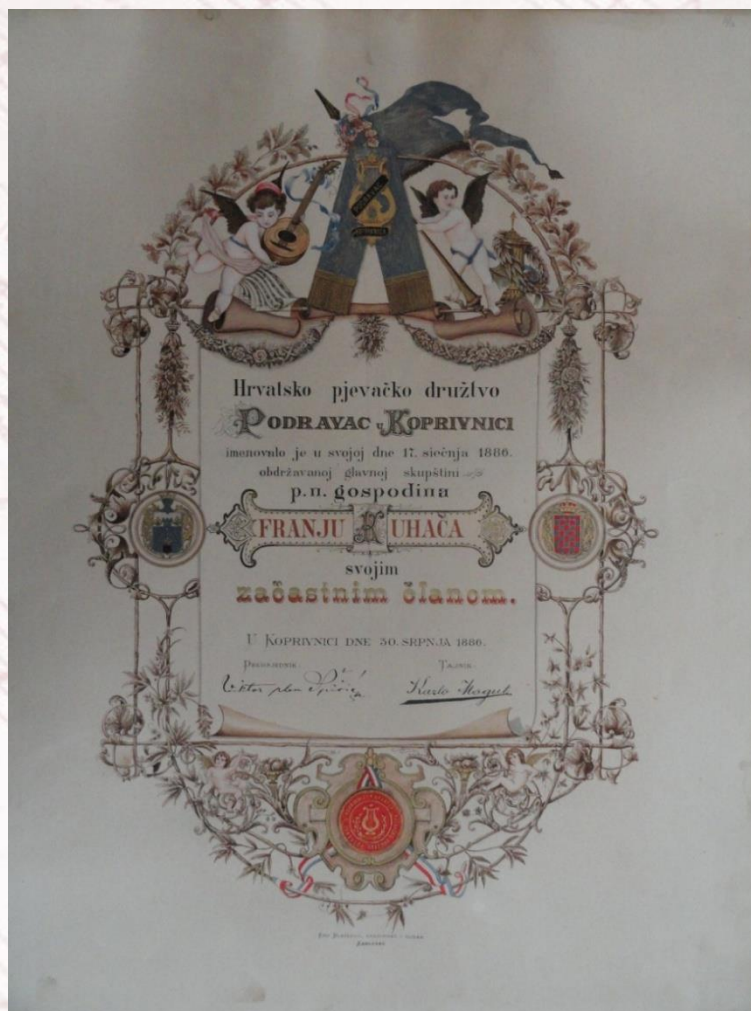 Hrvatsko pjevačko družtvo
PODRAVAC u KOPRIVNICI
imenovalo je u svojoj dne 17. siečnja 1886.
obdržavanoj glavnoj skupštini
p.n. gospodina
FRANJU KUHAČA
svojim
začastnim članom.
U KOPRIVNICI DNE 30. SRPNJA 1886.
PREDSJEDNIK: TAJNIK:
Karlo